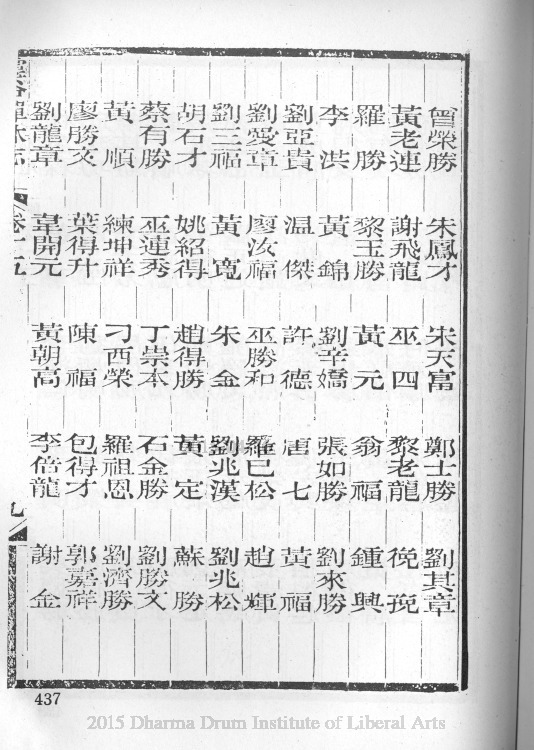 曾榮勝 朱鳳才 宋天富 鄭士勝 劉其章
黃老連 謝飛龍 巫四 黎老龍
羅勝 黎玉勝 黃元 翁福 鍾興
李洪 黃錦 劉辛嬌 張如勝 劉來勝
劉亞貴 温傑 許德 唐七 黃福
劉愛章 廖汝福 巫勝和 羅巳松 趙輝
劉三福 黃寬 朱金 劉兆漢 劉兆松
胡石才 姚紹得 趙得勝 黃定 蘇勝
蔡有勝 巫連秀 丁崇本 石金勝 劉勝文
黃順 練坤祥 刁西榮 羅祖恩 劉濟勝
廖勝文 葉得升 陳福 包得才 郭嘉祥
劉龍章 韋開元 黃朝高 李倍龍 謝金
卷十五 九
437
2015 Dharma Drum Institute of Liberal Arts